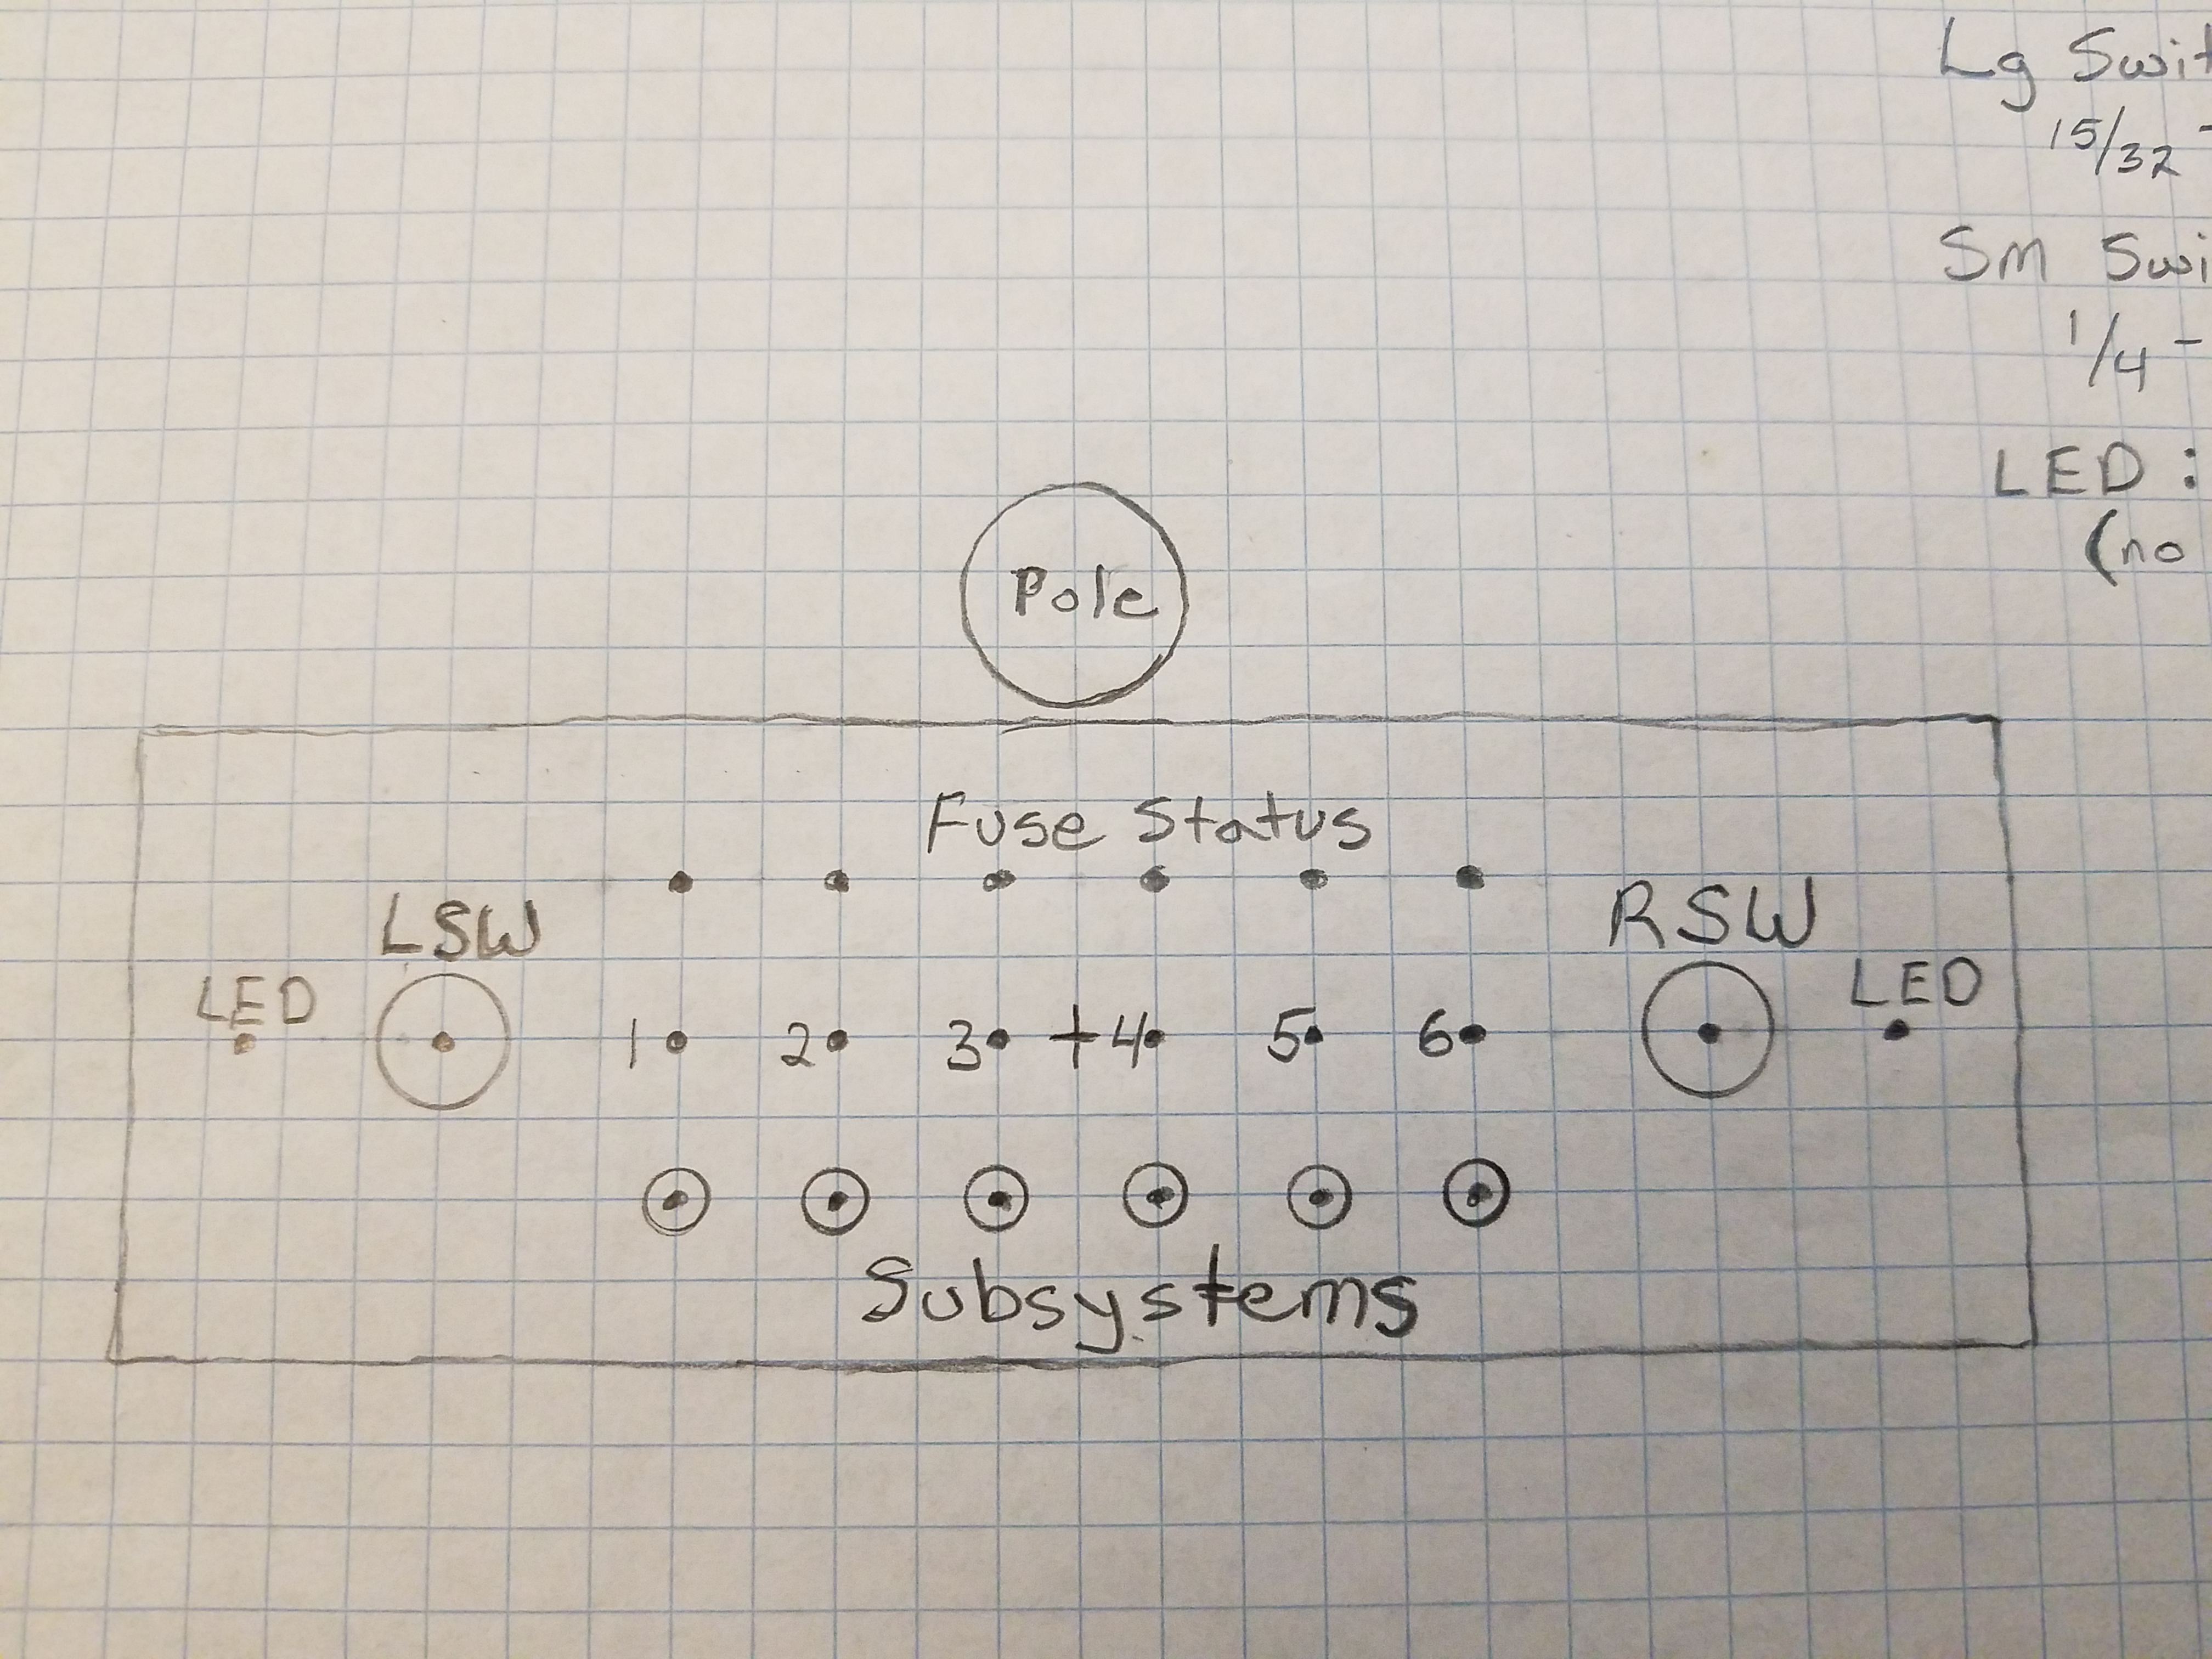 Lg
15/32 -
Sm
1/4 -
LED :
(no
Pole
Fuse Status
LSW
RSW
LED
LED
1 2 3 + 4 5 6
Subsystems